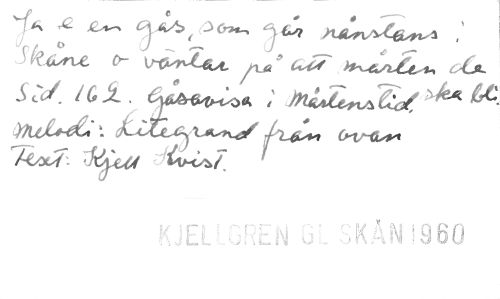 Ja e en gås, som går nånstans i
Skåne o väntar på att mårten de
Sid. 162. Gåsavisa i Mårtenstid. ska bli.
melodi: Litegrand från ovan
Text: Kjell Kvist.
KJELLGREN GL SKÅN 1960